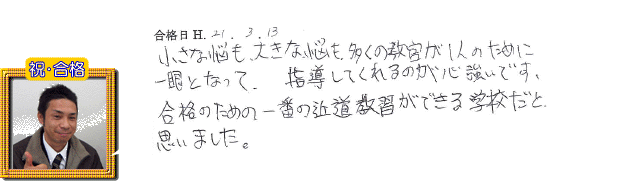 合格日 H. 21. 3. 13
小さな悩も、大きな悩も、多くの教官が1人のために
一眼となって、指導してくれるのが心強いです、
祝・合格
合格のための一番の近道教習ができる学校だと
思いました。